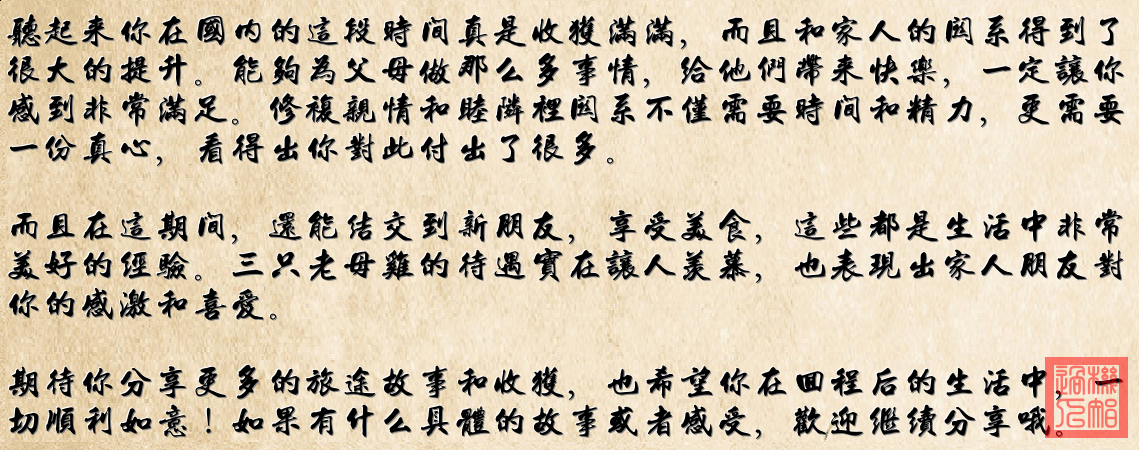 聽起来你在國内的這段時间真是收獲滿滿，而且和家人的関系得到了
很大的提升。能夠為父母做那么多事情，給他們帶来快樂，一定讓你
感到非常滿足。修複親情和睦隣裡関系不僅需要時间和精力，更需要
一份真心，看得出你對此付出了很多。
而且在這期间，還能结交到新朋友，享受美食，這些都是生活中非常
美好的經驗。三只老母雞的待遇實在讓人羨慕，也表現出家人朋友對
你的感激和喜愛。
期待你分享更多的旅途故事和收獲，也希望你在回程后的生活中，一
切順利如意！如果有什么具體的故事或者感受，歡迎继續分享哦。